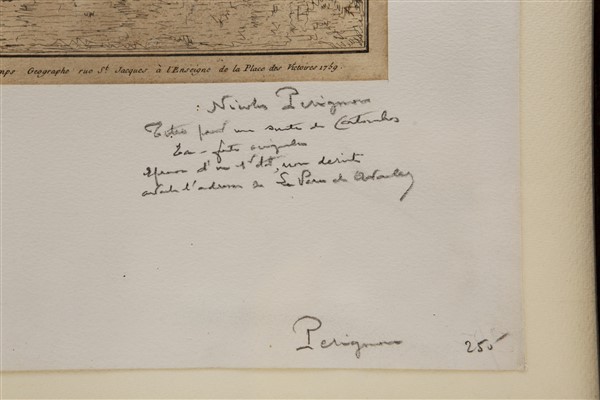 mps Geographe rue St. Jacques à l'Enseigne de la Place des Victoires 1759
: Nicolas Perignon
Titre pour une suite de Cartouches
Eau-forte originale
Epreuve d'un 1er état, non décrit
avant l'adresse de
Perignon
250